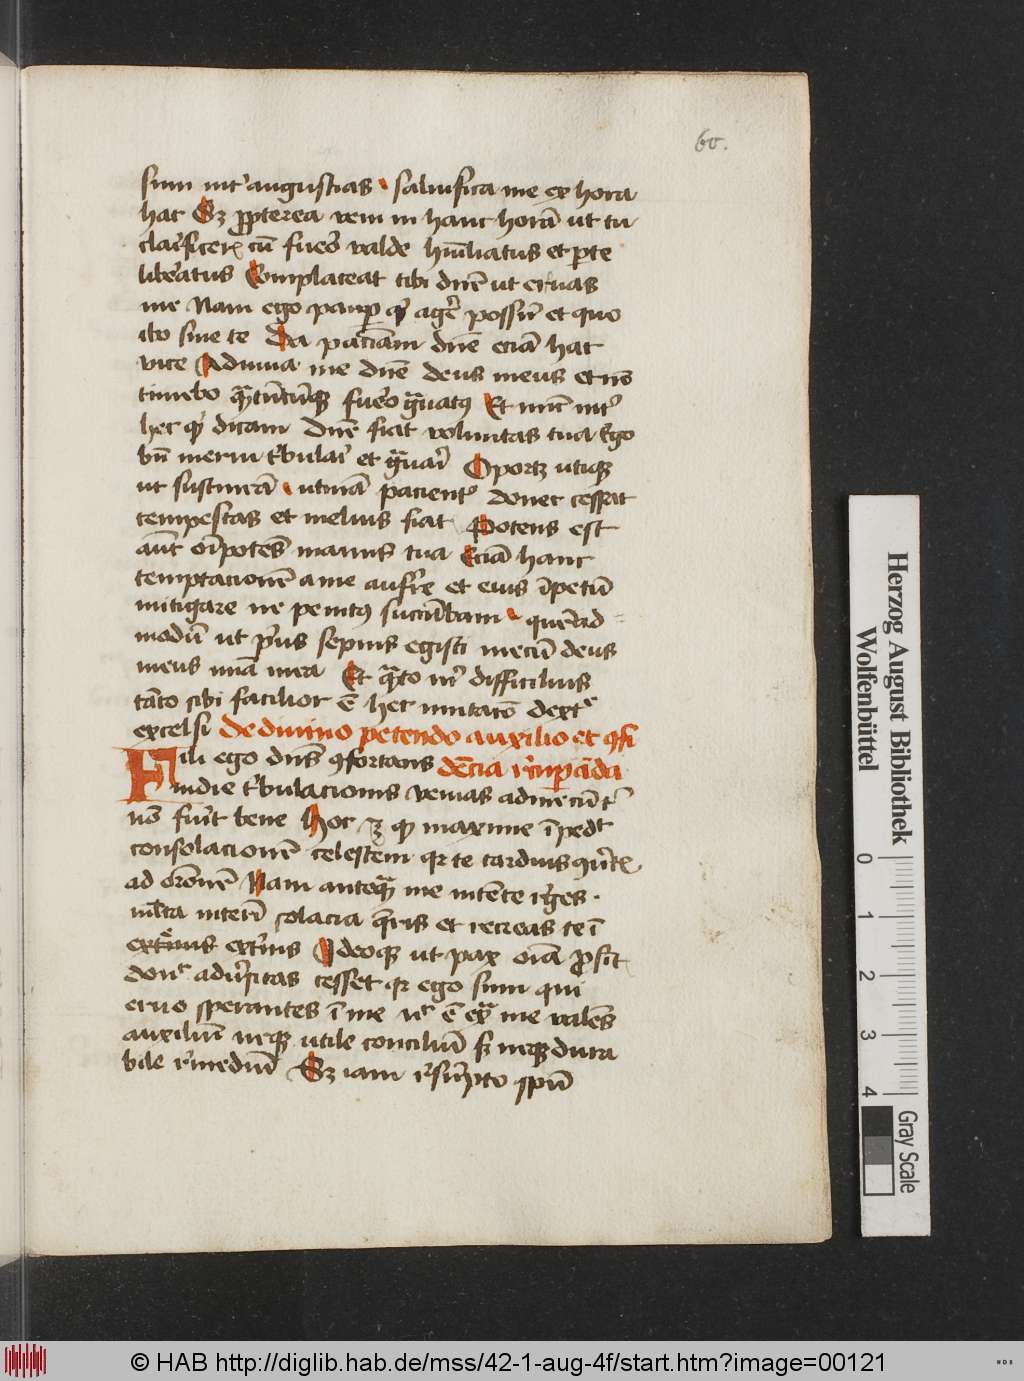 60.
sum int᷑ augustias salvifica me ex hora
hac Sꝫ ꝓpterea veni in hanc horā ut tu
clarificerꝭ cū fuero valde hūiliatus et ꝑ te
liberatus Complaceat tibi dnē ut eruas
me Nam ego pauꝑ quid agē possū et quo
ibo sine te Da paciēciam dnē eciā hac
vice Adiuua me dnē deus meus et nō
timebo quātūcūqꝫ fuero gͣuatꝰ Et nūc int᷑
hec quid dicam Dnē fiat voluntas tua Ego
bn̄ merui tribulari et gͣuari Oportꝫ utiqꝫ
ut sustineā utinā pacient᷑ donec tꝛanseat
tempestas et melius fiat Potens est
aūt oīpotēs manus tua Eciā hanc
temptacionē a me auferre et eius īpetū
mitigare ne penitꝰ succūbam quēad
modū ut prius sepius egisti mecū deus
meus mīa mea Et quāto m̄ difficilius
tāto tibi facilior ē hec mutatō dext᷑e
excelsi De divino petendo auxilio et ꝯfi
Fili ego dn̄s ꝯfortans dēcia rec̄upāda
in die tribulacionis venias ad me cū t᷑
nō fuerit bene Hoc ē quod maxime īpedit
consolacionē celestem qꝛ te tardius ꝯūtꝭ
ad orōnē Nam anteqͣ me intēte roges
multa interī solacia q̄ris et recreas te ī
extͥmis extͥnis Ideoqꝫ ut pax oīa ꝓsit
donec adversitas cesset qꝛ ego sum qui
eruo sperantes ī me nec ē extͣ me valēs
auxiliū neqꝫ utile conciliū sꝫ neqꝫ dura
bile remediū Sꝫ iam resūpto spū
Herzog August Bibliothek
Wolfenbüttel
0 1 2 3 4
Gray Scale
© HAB http://diglib.hab.de/mss/42-1-aug-4f/start.htm?image=00121